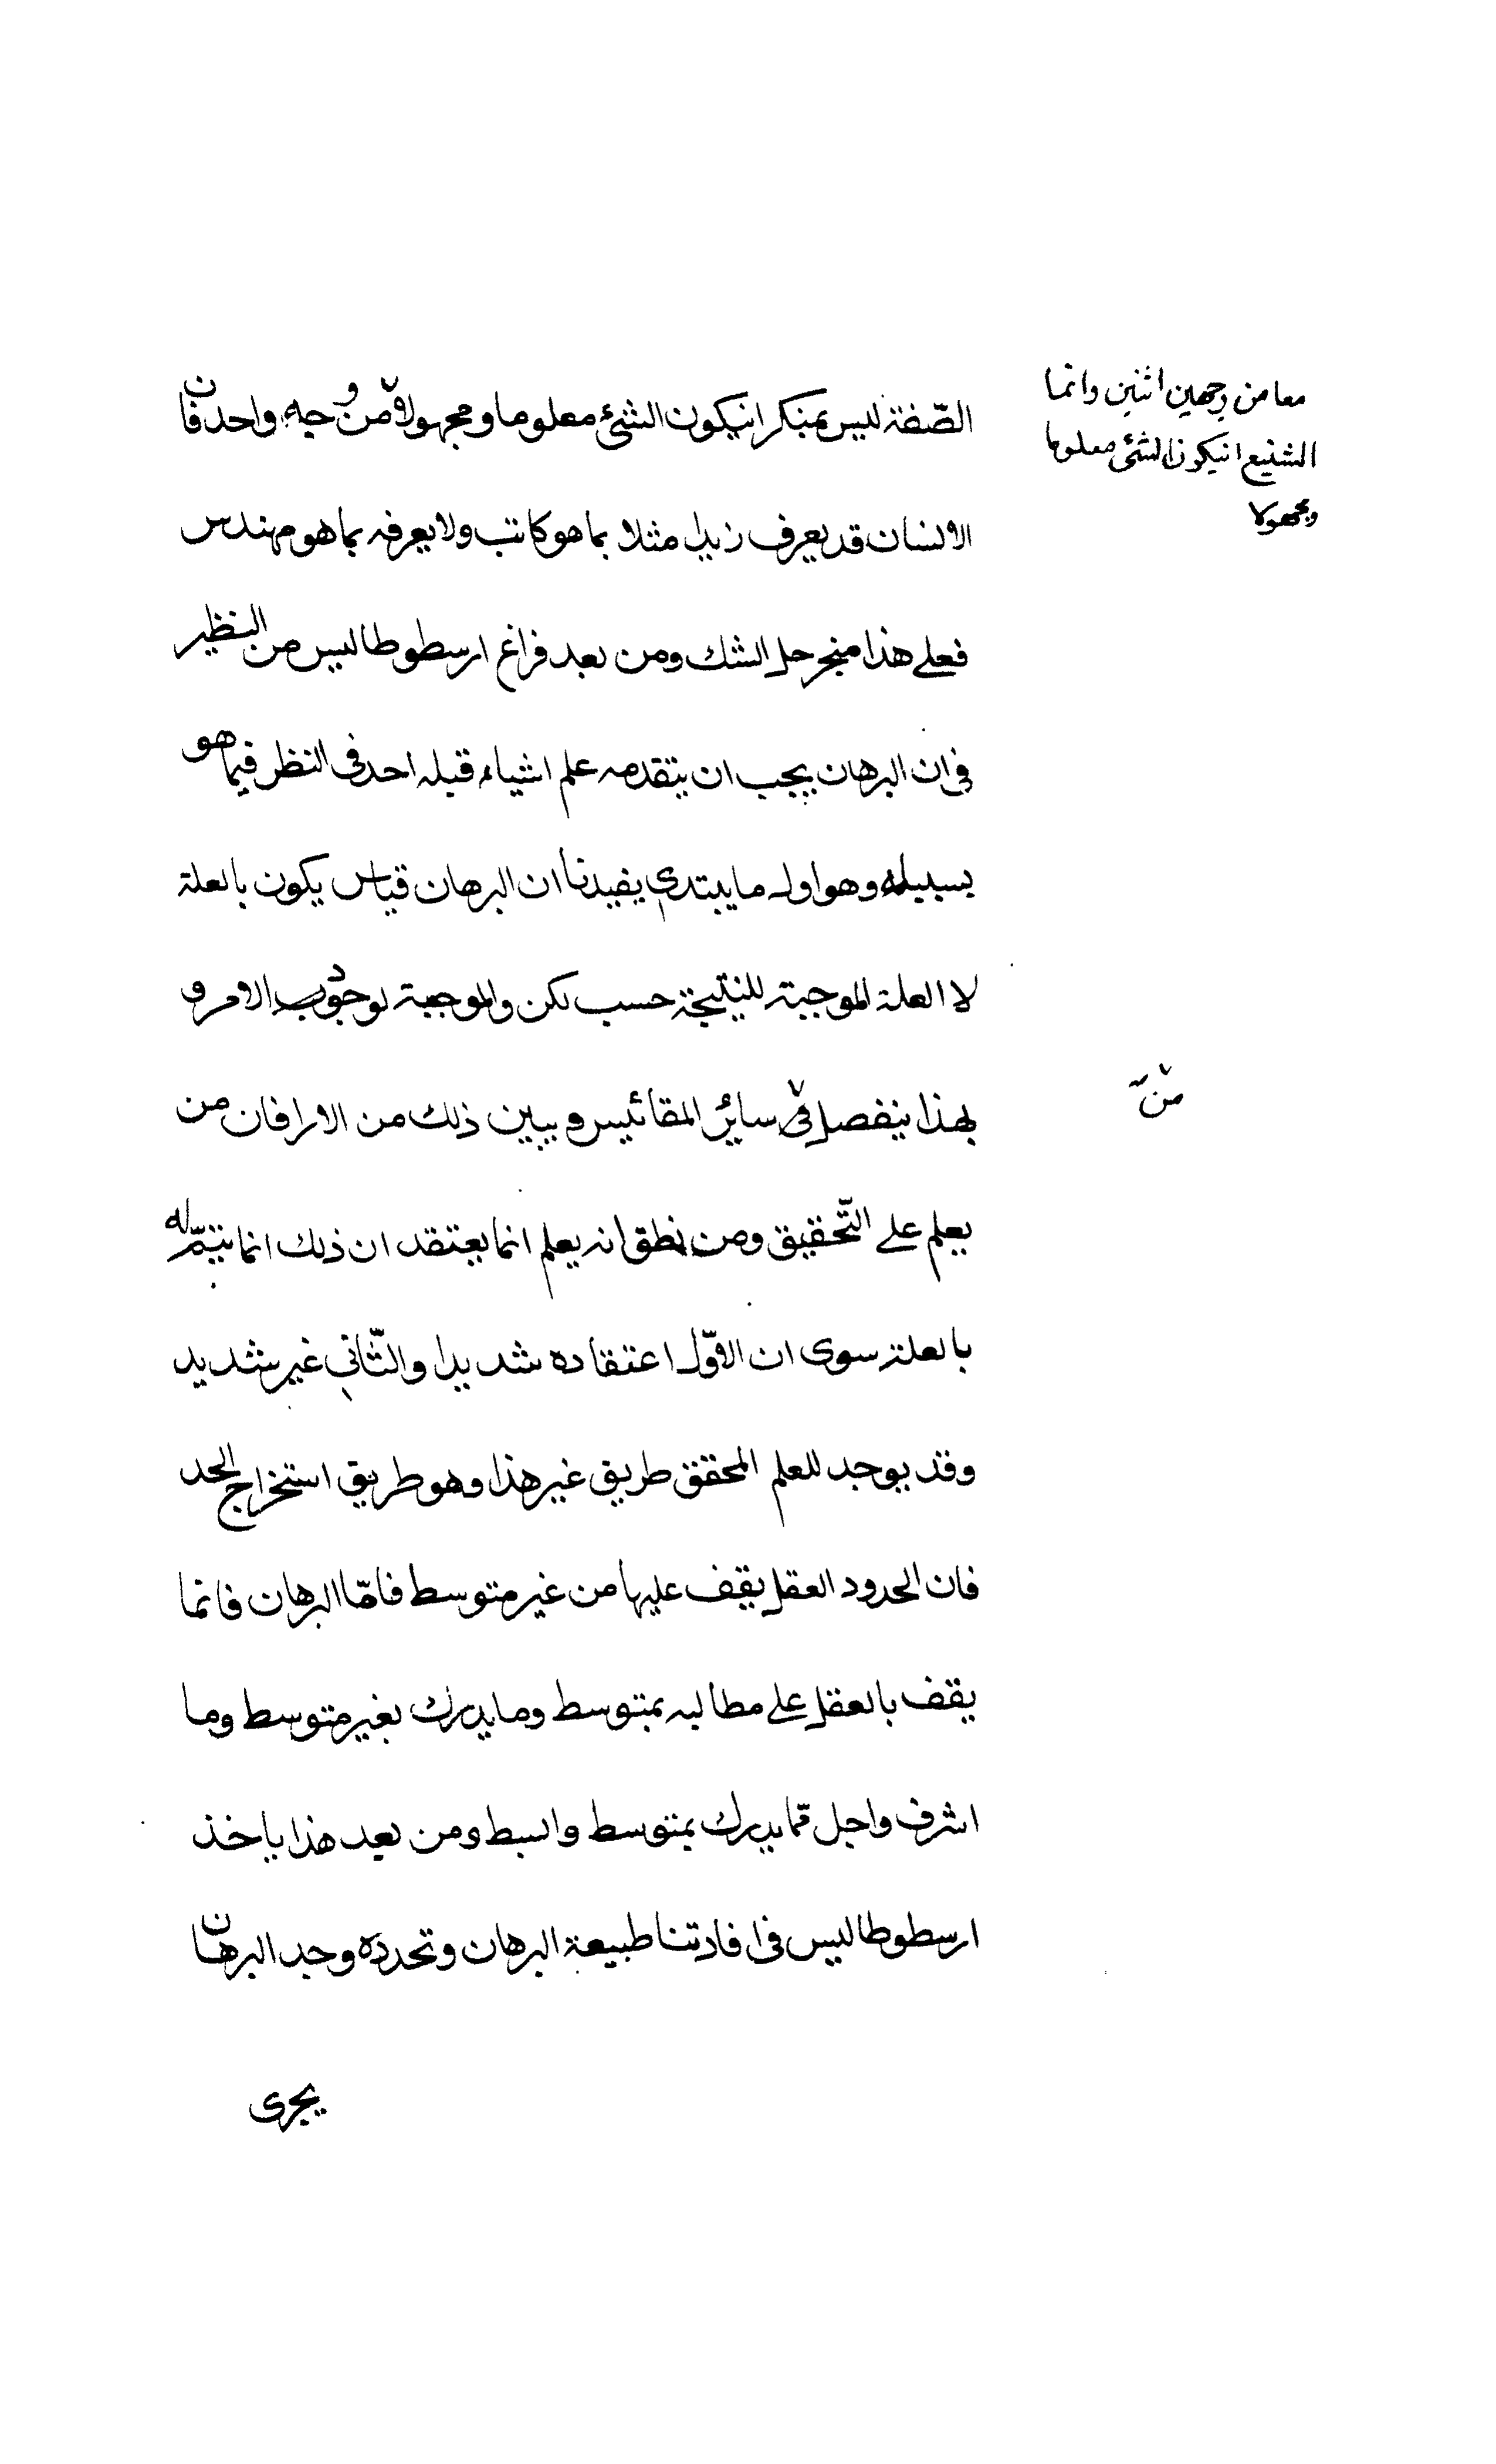 معا من وجهين اثنين وانما
الشنيع انيكون الشئ معلوما
ومجهولا
الصّفة ليس بمنكر انيكون الشئ معلوما ومجهولا من وجه واحد فان
الانسان قد يعرف زيدا مثلا بما هو كاتب ولا يعرفه بما هو مهندس
فعلى هذا منجر حل الشك ومن بعد فراغ ارسطوطاليس من النظير
فى ان البرهان يجب ان يتقدمه علم اشياء قبله احد فى النظر فيما هو
بسبيله وهو اول ما يبتدى يفيدنا ان البرهان قياس يكون بالعلة
لا العلة الموجبة للنتيجة حسب لكن والموجبة لوجود الامر و
بهذا ينفصل سائر المقائيس ويبين ذلك من الارا فان من
من
يعلم على التّحقيق ومن نطق انه يعلم انما يعتقد ان ذلك انما يتمّ له
بالعلة سوى ان الاوّل اعتقاده شديدا والثّانى غير شديد
وقد يوجد للعلم المحقق طريق غير هذا وهو طريق استخراج الحد
فان الحدود العقل يقف عليها من غير متوسط فامّا البرهان فانما
يقف بالعقل على مطالبه بمتوسط وما يدرك بغير متوسط وما
اشرف واجل ممّا يدرك بمتوسط وابسط ومن بعد هذا ياخذ
ارسطوطاليس فى افادتنا طبيعة البرهان وتحدده وحد البرهان
يجرى